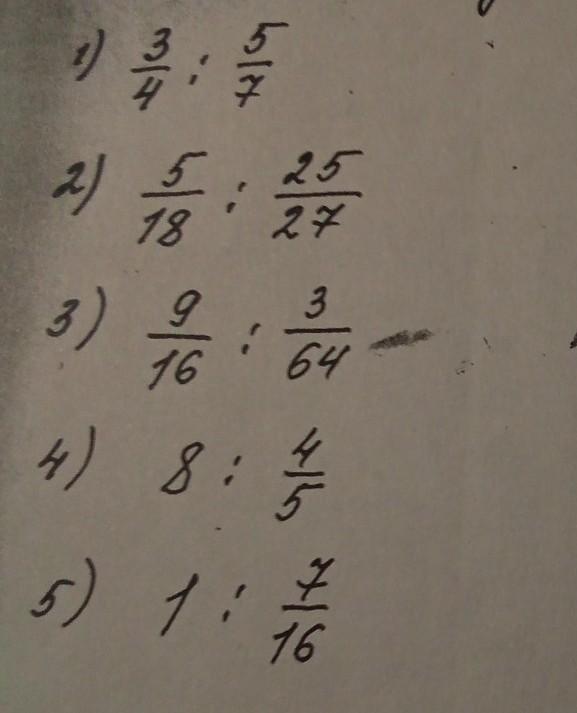 1) 3/4 : 5/7
2) 5/18 : 25/27
3) 9/16 : 3/64
4) 8 : 4/5
5) 1 : 7/16